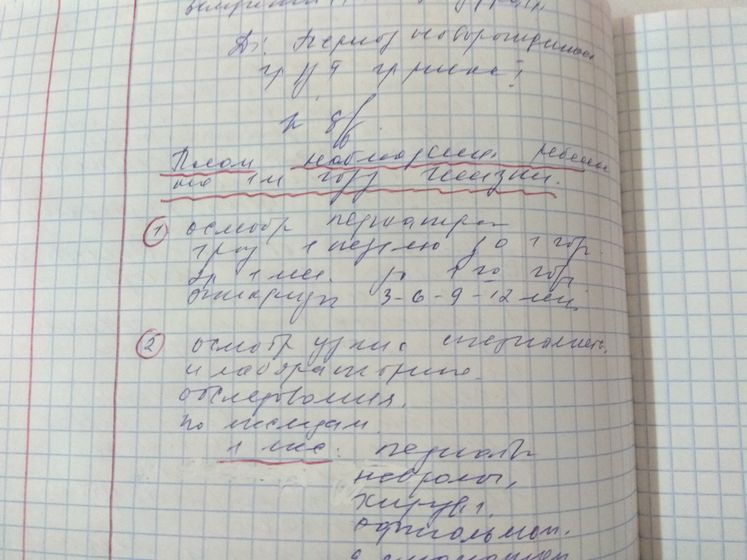 Ds: Период новорожденности
гр
План наблюдения ребенка
на 1м году жизни.
① осмотр педиатра
1 раз 1 неделю до 1
1 мес. до 1 го год.
эпикризы 3-6-9-12 мес
② осмотр узких специалист.
и лабораторные
обследования.
по месяцам.
1 мес. педиатр
невролог,
хирург,
офтальмол.